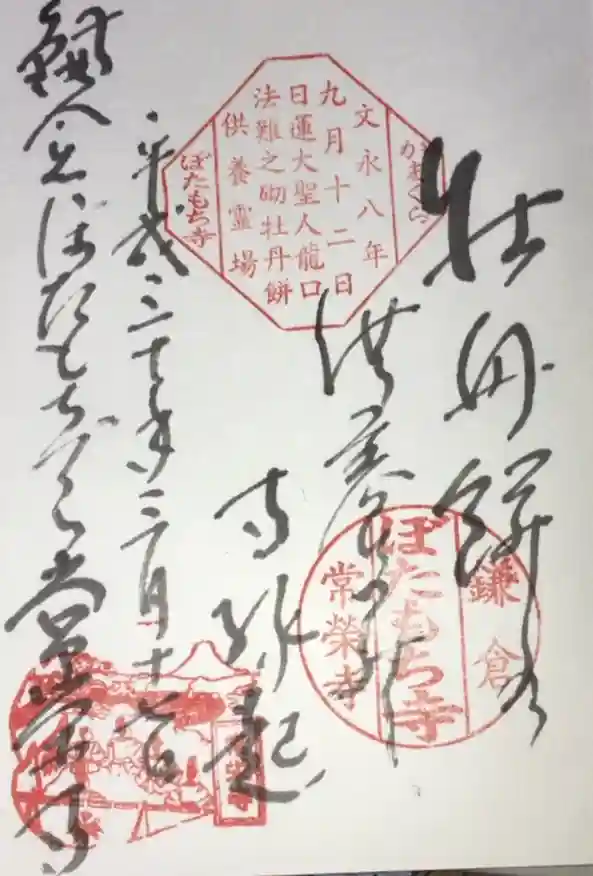 牡丹餅
供養
寺縁起
平成三十年三月十七日
鎌倉ぼたもち寺常栄寺
かまくら
文永八年
九月十二日
日蓮大聖人龍口
法難之砌牡丹餅
供養霊場
ぼたもち寺
鎌倉
ぼたもち寺
常榮寺